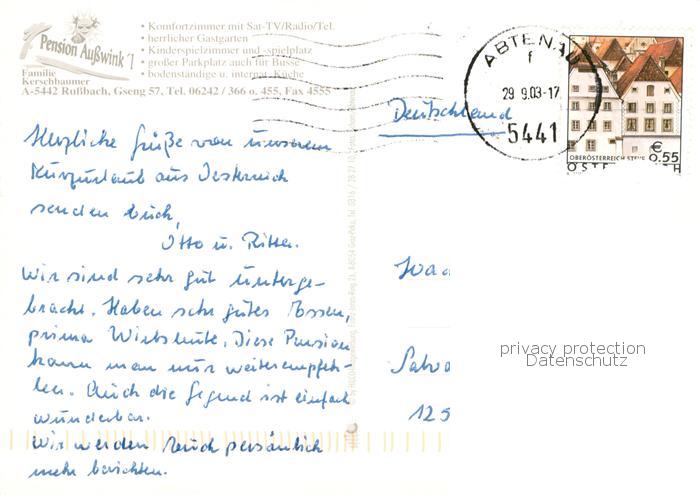 • Komfortzimmer mit Sat-TV/Radio/Tel.
• herrlicher Gastgarten
• Kinderspielzimmer und -spielplatz
• großer Parkplatz auch für Busse
• bodenständige u. internat. Küche
Pension Außwink'l
Familie
Kerschbaumer
A-5442 Rußbach, Gseng 57, Tel. 06242 / 366 o. 455, Fax 4555
ABTENAU
f
29 9.03-17
5441
OBERÖSTERREICH
€
0.55
Deutschland
Herzliche Grüße von unserem
Kurzurlaub aus Österreich
senden Euch,
Otto u.
Wir sind sehr gut unterge-
bracht. Haben sehr gutes Essen,
prima Wirtsleute. Diese Pension
kann man nur weiterempfeh-
len. Auch die Gegend ist einfach
wunderbar.
Wir werden Euch persönlich
mehr berichten.
125
privacy protection
Datenschutz